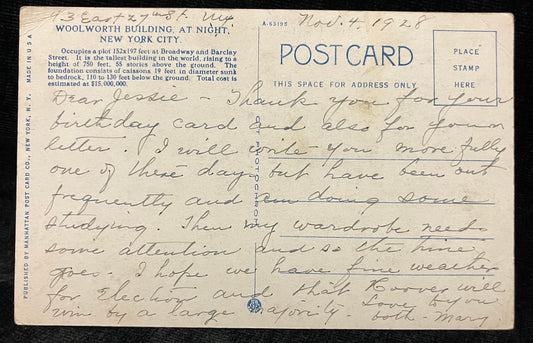 43 East 27th St. Ny.
Nov. 4, 1928
WOOLWORTH BUILDING, AT NIGHT,
NEW YORK CITY.
Occupies a plot 152x197 feet at Broadway and Barclay
Street. It is the tallest building in the world, rising to a
height of 750 feet, 55 stories above the ground. The
foundation consists of caissons 19 feet in diameter sunk
to bedrock, 110 to 130 feet below the ground. Total cost is
estimated at $15,000,000.
A-63195
POST CARD
THIS SPACE FOR ADDRESS ONLY
PLACE
STAMP
HERE
PUBLISHED BY MANHATTAN POST CARD CO., NEW YORK, N. Y. MADE IN U S A
Dear Jessie - Thank you for your
birthday card and also for your
letter. I will write you more fully
one of these days but have been out
frequently and am doing some
studying. Then my wardrobe needs
some attention and so the time
goes - I hope we have fine weather
for Election and that Hoover will
win by a large majority. Love to you
both Mary